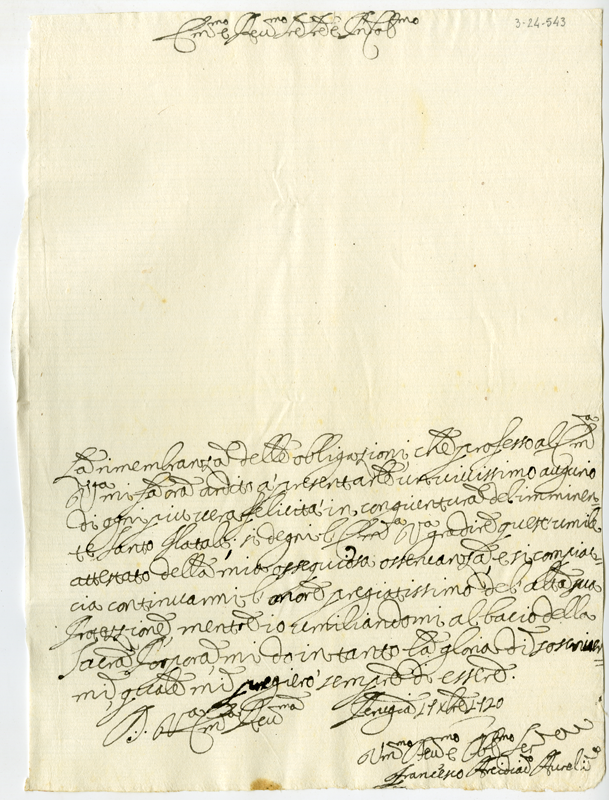 3-24-543
Em.mo e Reu.mo
La rimembranza delle obligazioni che professo all Em.za
V.ra mi fa ora ardito a presentarle un viuissimo augurio
di ogni piu uera felicità in congiuntura del imminen-
te Santo Natale; si degni l'Em.za V.ra gradire quest umile
attestato della mia ossequiosa osseruanza e si compiac-
cia continuarmi l'onore pregiatissimo del'alta sua
Protezzione, mentre io umiliandomi al bacio della
Sacra Porpora, mi do intanto la gloria di sosscriuer-
mi, quale mi pregierò sempre di essere.
D. V.ra Em.za Reu.ma
Perugia 17 Xbre 1720
Um.mo Deu.mo e Obb.mo Ser.
Francesco Arcidiac. Aureli